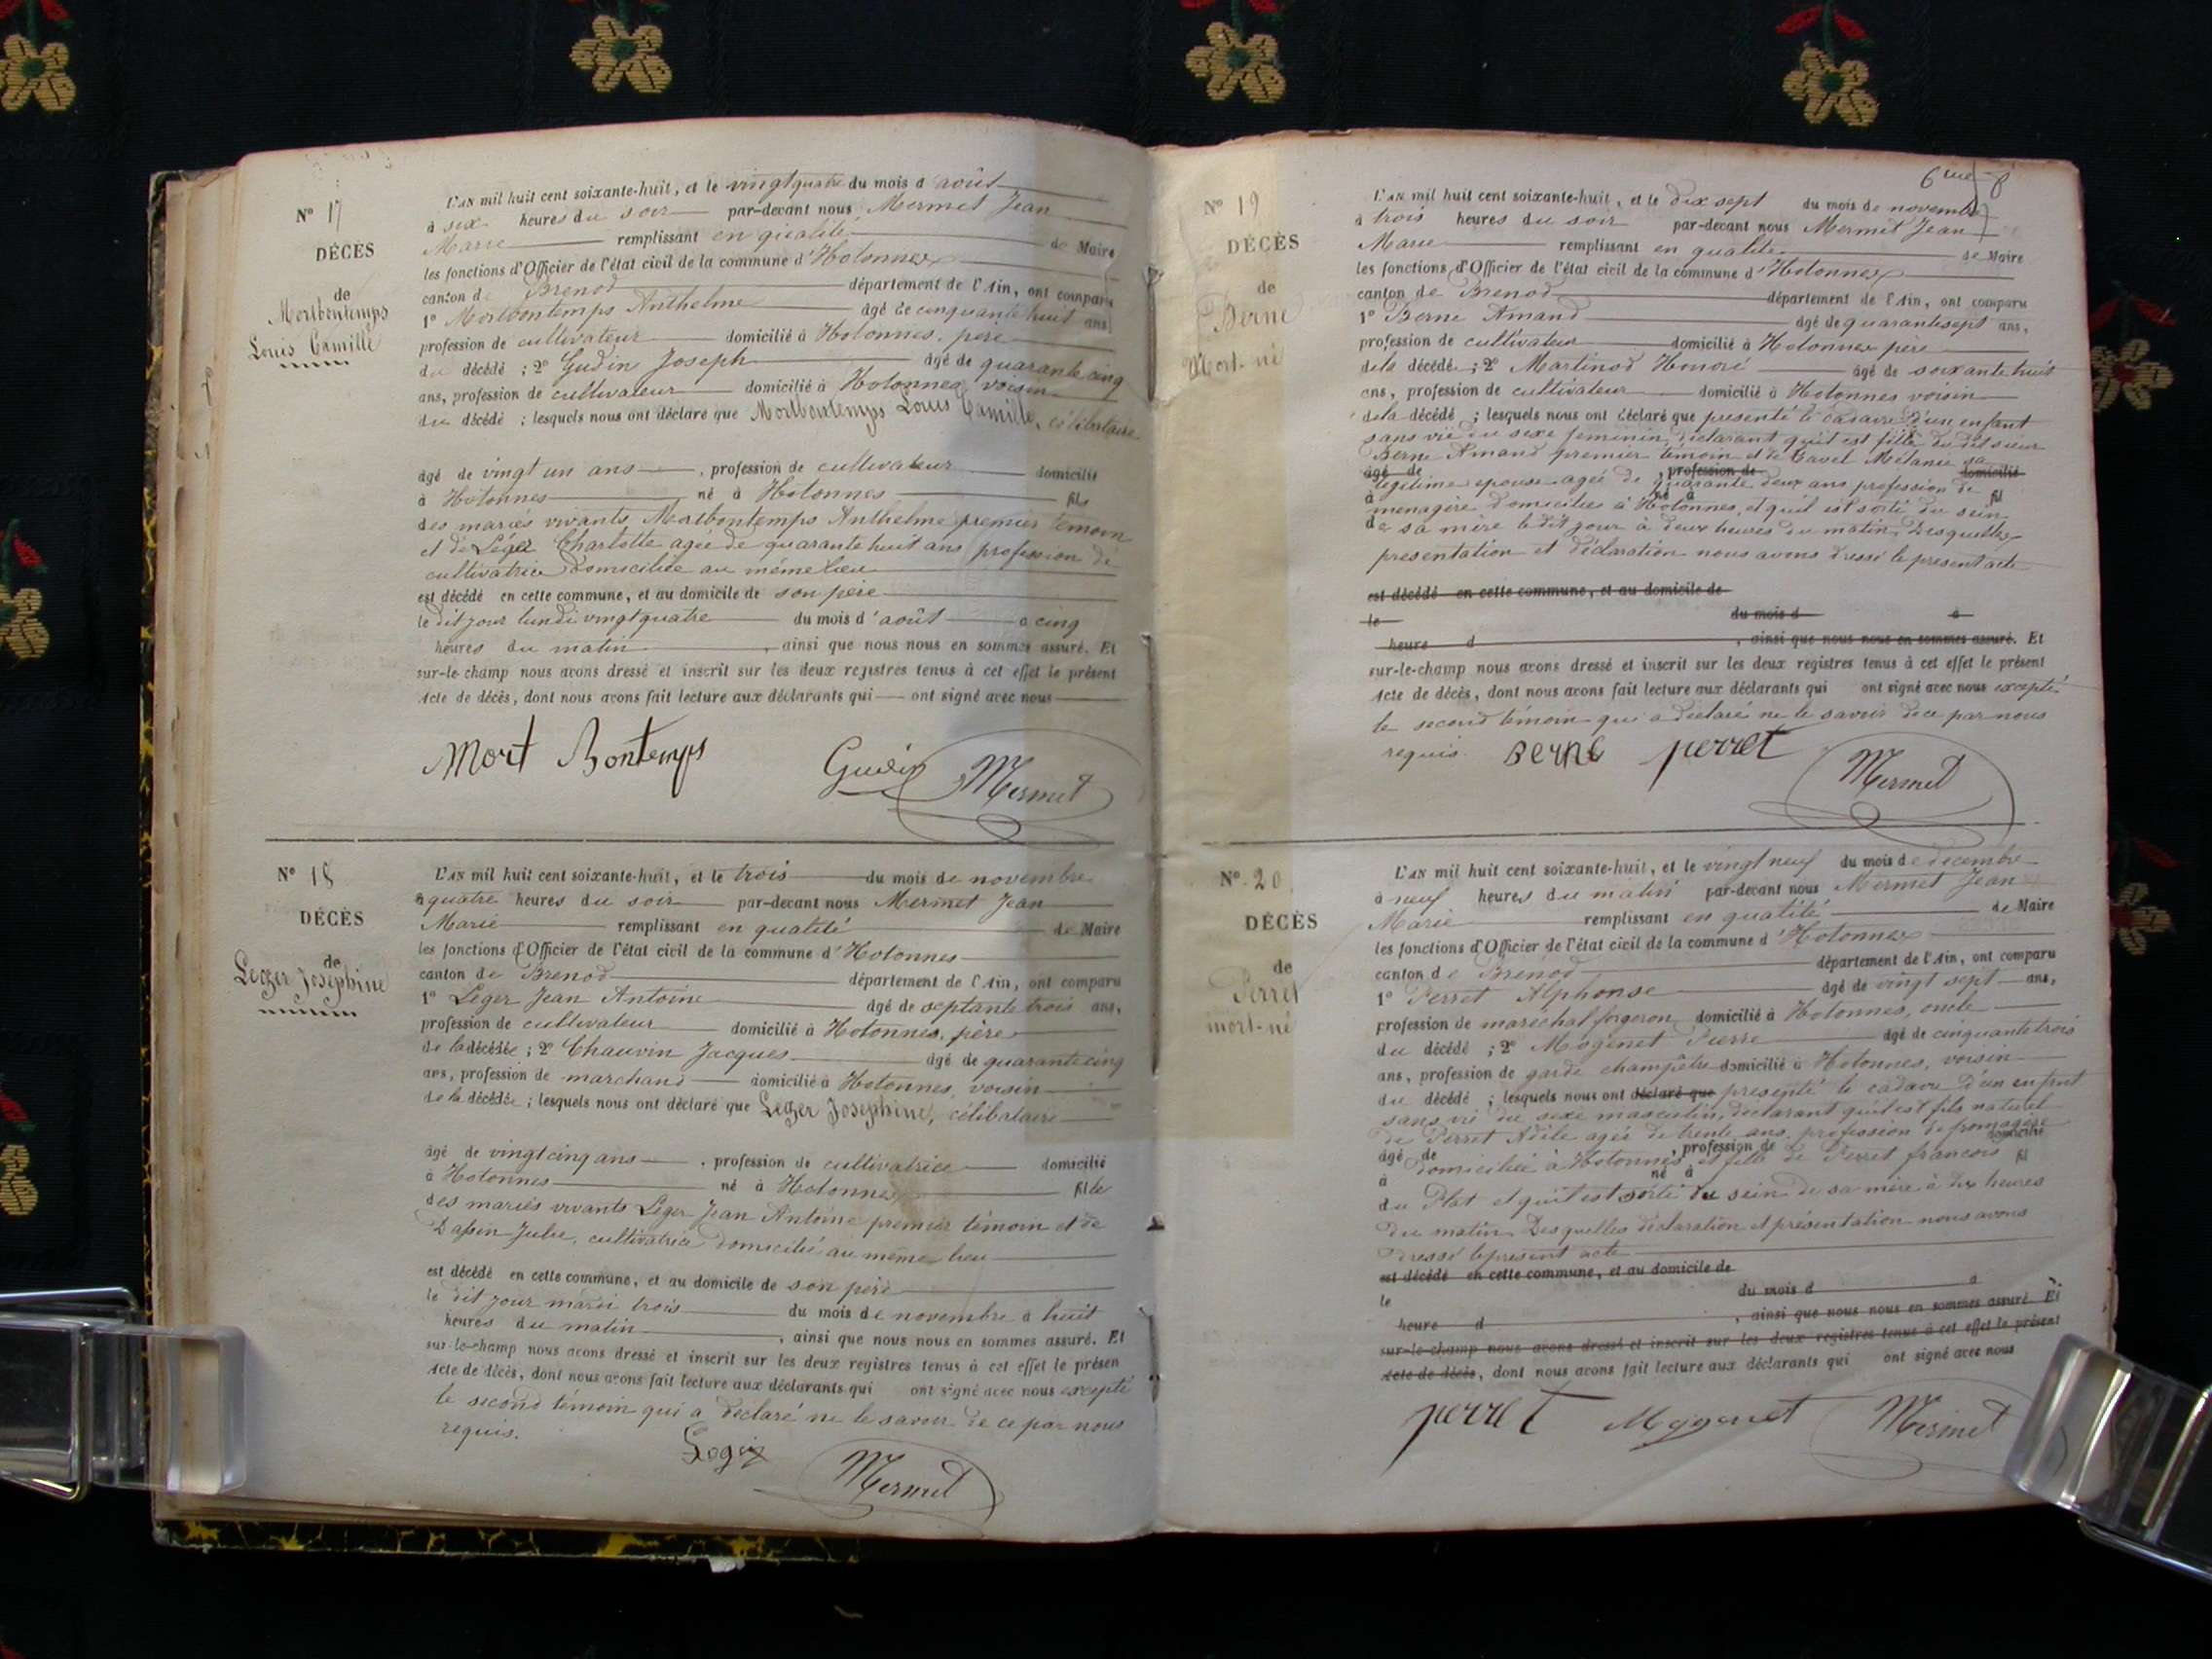 N° 17
DÉCÈS
de
Mortbontemps
Louis Camille
L'AN mil huit cent soixante-huit, et le vingt quatre du mois d'août
à six heures du soir par-devant nous Mermet Jean
Marie remplissant en qualité de Maire
les fonctions d'Officier de l'état civil de la commune d'Hotonnes
canton de Brenod département de l'Ain, ont comparu
1° Mortbontemps Anthelme âgé de cinquante huit ans
profession de cultivateur domicilié à Hotonnes, père
du décédé ; 2° Gudin Joseph âgé de quarante cinq
ans, profession de cultivateur domicilié à Hotonnes, voisin
du décédé ; lesquels nous ont déclaré que Mortbontemps Louis Camille, célibataire
âgé de vingt un ans, profession de cultivateur domicilié
à Hotonnes né à Hotonnes fils
des mariés vivants Mortbontemps Anthelme premier témoin
et de Léger Charlotte agée de quarante huit ans profession de
cultivatrice domiciliée au même lieu
est décédé en cette commune, et au domicile de son père
le dit jour lundi vingt quatre du mois d'août à cinq
heures du matin, ainsi que nous nous en sommes assuré. Et
sur-le-champ nous avons dressé et inscrit sur les deux registres tenus à cet effet le présent
Acte de décès, dont nous avons fait lecture aux déclarants qui ont signé avec nous
Mort Bontemps Gudin Mermet
N° 18
DÉCÈS
de
Leger Joséphine
L'AN mil huit cent soixante-huit, et le trois du mois de novembre
à quatre heures du soir par-devant nous Mermet Jean
Marie remplissant en qualité de Maire
les fonctions d'Officier de l'état civil de la commune d'Hotonnes
canton de Brenod département de l'Ain, ont comparu
1° Leger Jean Antoine âgé de septante trois ans,
profession de cultivateur domicilié à Hotonnes, père
de la décédée ; 2° Chauvin Jacques âgé de quarante cinq
ans, profession de marchand domicilié à Hotonnes, voisin
de la décédée ; lesquels nous ont déclaré que Leger Joséphine, célibataire
âgé de vingt cinq ans, profession de cultivatrice domicilié
à Hotonnes né à Hotonnes fille
des mariés vivants Léger Jean Antoine premier témoin et de
Julie, cultivatrice domicilié au même lieu
est décédé en cette commune, et au domicile de son père
le dit jour mardi trois du mois de novembre à huit
heures du matin, ainsi que nous nous en sommes assuré. Et
sur-le-champ nous avons dressé et inscrit sur les deux registres tenus à cet effet le présen
Acte de décès, dont nous avons fait lecture aux déclarants qui ont signé avec nous excepté
le second témoin qui a déclaré ne le savoir de ce par nous
requis.
Mermet
N° 19
DÉCÈS
de
Berne
Mort-né
L'AN mil huit cent soixante-huit, et le dix sept du mois de novembre
à trois heures du soir par-devant nous Mermet Jean
Marie remplissant en qualité de Maire
les fonctions d'Officier de l'état civil de la commune d'Hotonnes
canton de Brenod département de l'Ain, ont comparu
1° Berne Amand âgé de quarante sept ans,
profession de cultivateur domicilié à Hotonnes père
de la décédé ; 2° Martinod Honoré âgé de soixante huit
ans, profession de cultivateur domicilié à Hotonnes voisin
de la décédé ; lesquels nous ont déclaré que présenté le cadavre d'un enfant
sans vie du sexe feminin, déclarant qu'il est fille du dit sieur
Berne Amand premier témoin et de Cavel Mélanie sa
âgé de , profession de domicilié
legitime epouse agée de quarante deux ans profession de
à né à fil
menagère domiciliés à Hotonnes, et qu'il est sorti du sein
de sa mère le dit jour à deux heures du matin. Desquelles
presentation et déclaration nous avons dressé le present acte
est décédé en cette commune, et au domicile de
le du mois d à
heure d , ainsi que nous nous en sommes assuré. Et
sur-le-champ nous avons dressé et inscrit sur les deux registres tenus à cet effet le présent
Acte de décès, dont nous avons fait lecture aux déclarants qui ont signé avec nous excepté
le second témoin qui a déclaré ne le savoir de ce par nous
requis. Berne perret Mermet
N° 20
DÉCÈS
de
Perret
mort-né
L'AN mil huit cent soixante-huit, et le vingt neuf du mois de decembre
à neuf heures du matin par-devant nous Mermet Jean
Marie remplissant en qualité de Maire
les fonctions d'Officier de l'état civil de la commune d'Hotonnes
canton de Brenod département de l'Ain, ont comparu
1° Perret Alphonse âgé de vingt sept ans,
profession de maréchal forgeron domicilié à Hotonnes, oncle
du décédé ; 2° Mogenet Pierre âgé de cinquante trois
ans, profession de garde champêtre domicilié à Hotonnes, voisin
du décédé ; lesquels nous ont déclaré que presenté le cadavre d'un enfant
sans vie du sexe masculin, declarant qu'il est fils naturel
de Perret Adèle agée de trente ans profession de
âgé de , profession de domicilié
domiciliée à Hotonnes et fille de Perret francois
à né à fil
du Plat et qu'il est sorti du sein de sa mère à dix heures
du matin. Desquelles déclaration et présentation nous avons
dressé le présent acte
est décédé en cette commune, et au domicile de
le du mois d à
heure d , ainsi que nous nous en sommes assuré. Et
sur-le-champ nous avons dressé et inscrit sur les deux registres tenus à cet effet le présent
Acte de décès, dont nous avons fait lecture aux déclarants qui ont signé avec nous
perret Mogenet Mermet